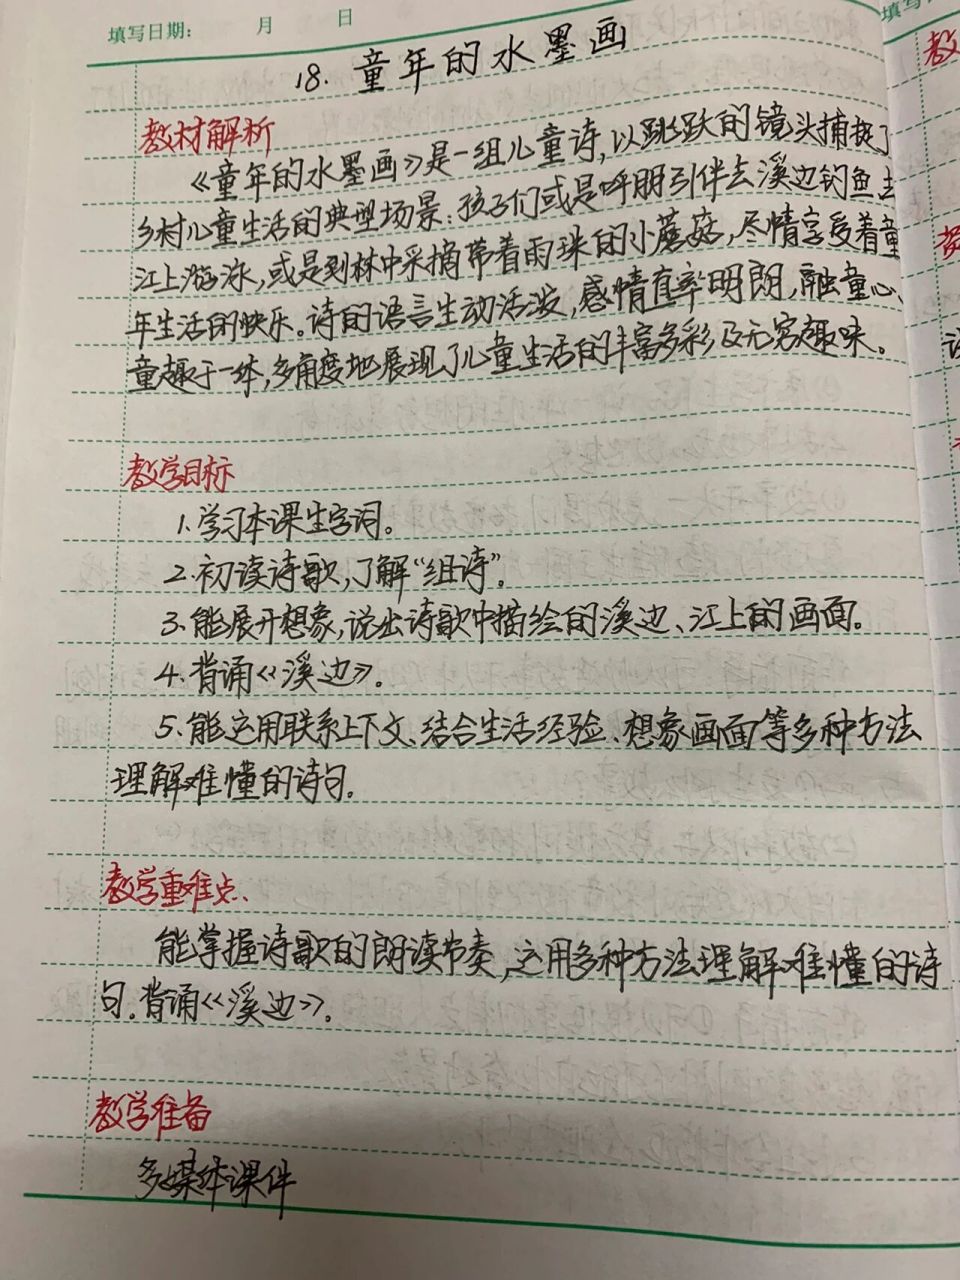 填写日期： 月 日
18.童年的水墨画
教材解析
《童年的水墨画》是一组儿童诗,以跳跃的镜头捕捉了
乡村儿童生活的典型场景:孩子们或是呼朋引伴去溪边钓鱼去
江上游泳,或是到林中采摘带着雨珠的小蘑菇,尽情享受着童
年生活的快乐。诗的语言生动活泼,感情直率明朗,融童心、
童趣于一体,多角度地展现了儿童生活的丰富多彩及无穷趣味。
教学目标
1.学习本课生字词。
2.初读诗歌,了解“组诗”。
3.能展开想象,说出诗歌中描绘的溪边、江上的画面。
4.背诵《溪边》。
5.能运用联系上下文、结合生活经验、想象画面等多种方法
理解难懂的诗句.
教学重难点.
能掌握诗歌的朗读节奏,运用多种方法理解难懂的诗
句.背诵《溪边》.
教学准备
多媒体课件
填写
教